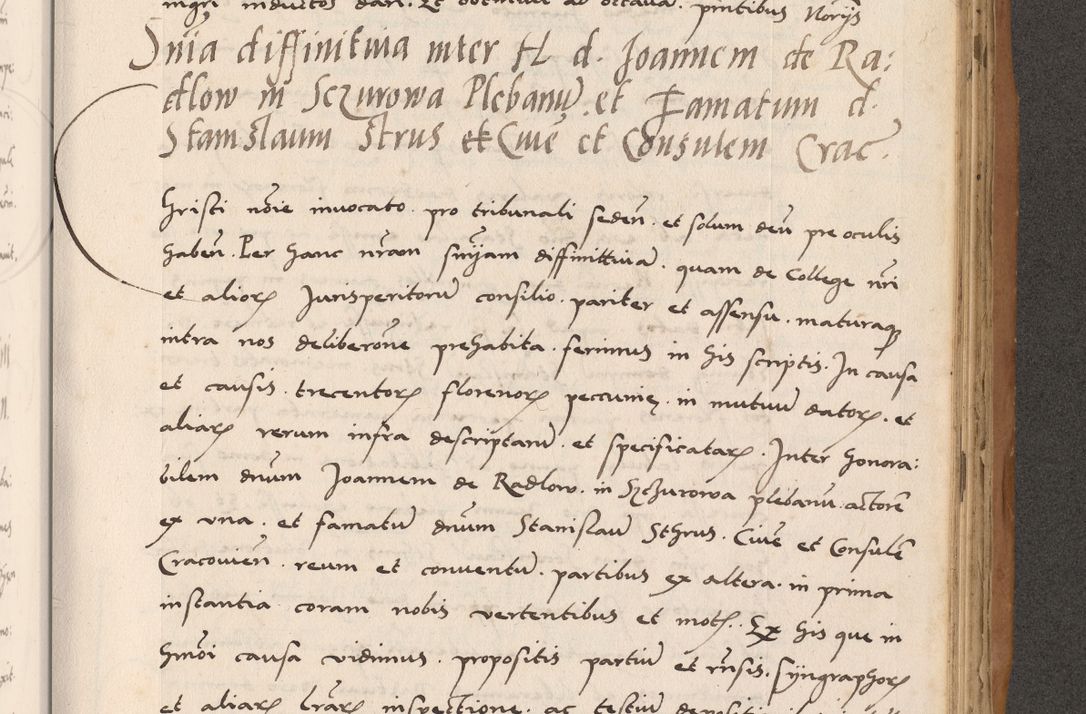 nigri inductos dari. Et obtentui ad octava. pntibus Norijs
Snia diffinitiua inter H d. Joannem de Ra:
dlow in Sczurowa Plebanū et Famatum d.
Stanislaum Strus et Ciuē et Consulem Crac.
hristi nōie inuocato. pro tribunali sedeñ. et solum deū pre oculis
habeñ. Per hanc nr̄am sniam diffinittiuā. quam de College nr̄i
et alior. Jurisperitorū consilio. pariter et assensu. maturaq
intra nos deliberōne prehabita. ferimus in his scriptis. In causa
et causis. trecentor. florenor. peccunię. in mutuū dator. et
aliar. rerum infra descriptarū. et specificatar. Inter honora:
bilem dnūm Joannem de Radlow. in Sczurowa plebanū. actorē
ex vna. et famatū dnūm Stanislaū Sthrus. Ciuē et Consulē
Cracouieñ. reum et conuentū. partibus ex altera. in prima
instantia coram nobis vertentibus et mot. Ex his que in
hmōi causa vidimus. propositis partiū et rn̄sis. syngraphor
et aliar. lr̄ar. inspectione. ac testiū